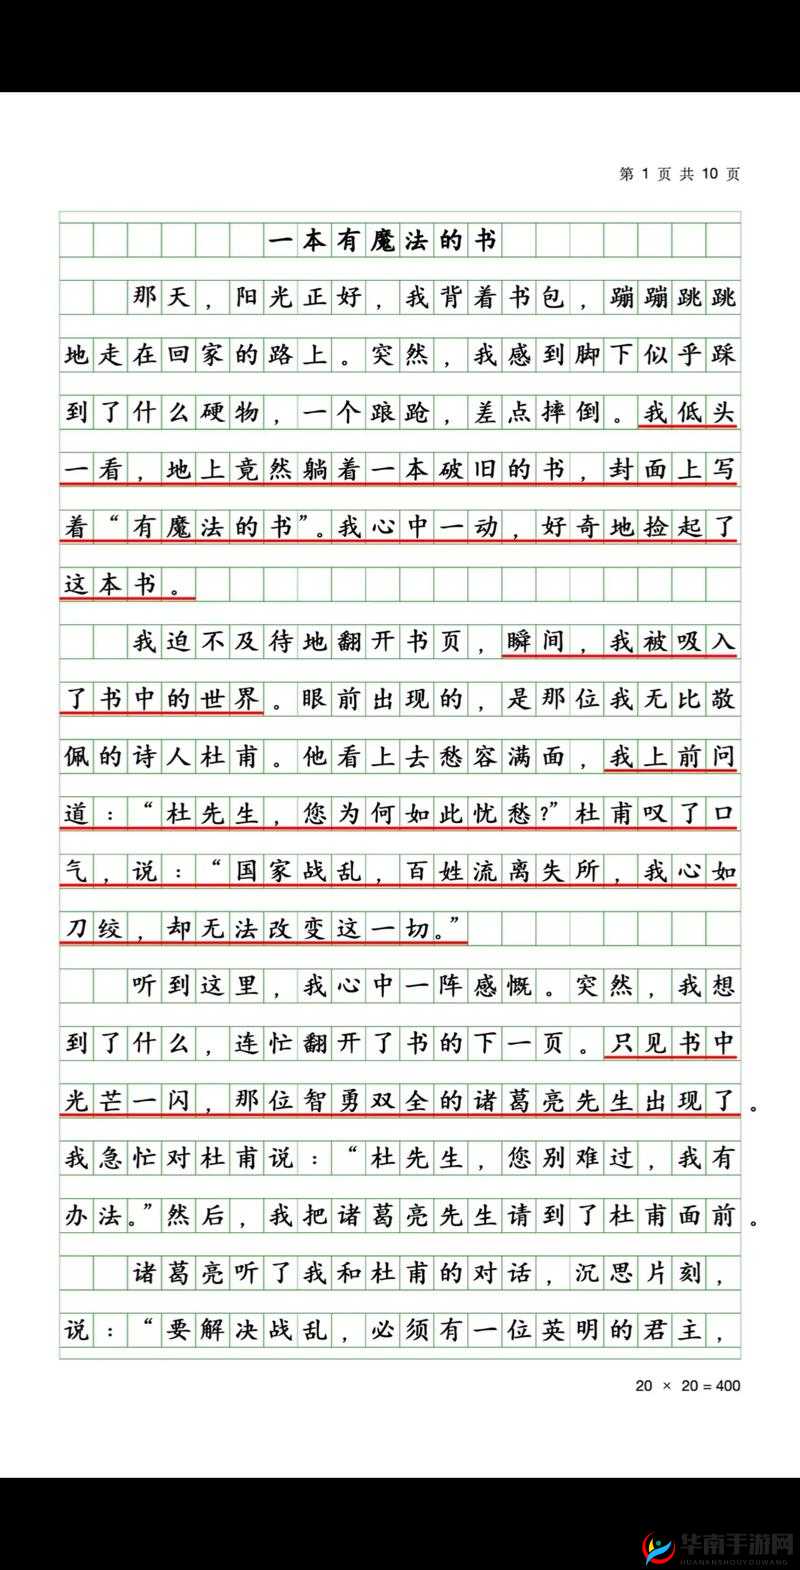 第 1 页 共 10 页
一本有魔法的书
那天，阳光正好，我背着书包，蹦蹦跳跳
地走在回家的路上。突然，我感到脚下似乎踩
到了什么硬物，一个踉跄，差点摔倒。我低头
一看，地上竟然躺着一本破旧的书，封面上写
着“有魔法的书”。我心中一动，好奇地捡起了
这本书。
我迫不及待地翻开书页，瞬间，我被吸入
了书中的世界。眼前出现的，是那位我无比敬
佩的诗人杜甫。他看上去愁容满面，我上前问
道：“杜先生，您为何如此忧愁?”杜甫叹了口
气，说：“国家战乱，百姓流离失所，我心如
刀绞，却无法改变这一切。”
听到这里，我心中一阵感慨。突然，我想
到了什么，连忙翻开了书的下一页。只见书中
光芒一闪，那位智勇双全的诸葛亮先生出现了。
我急忙对杜甫说：“杜先生，您别难过，我有
办法。”然后，我把诸葛亮先生请到了杜甫面前。
诸葛亮听了我和杜甫的对话，沉思片刻，
说：“要解决战乱，必须有一位英明的君主，
20 × 20 = 400
华南手游网
HUANANSHOUYOUWANG